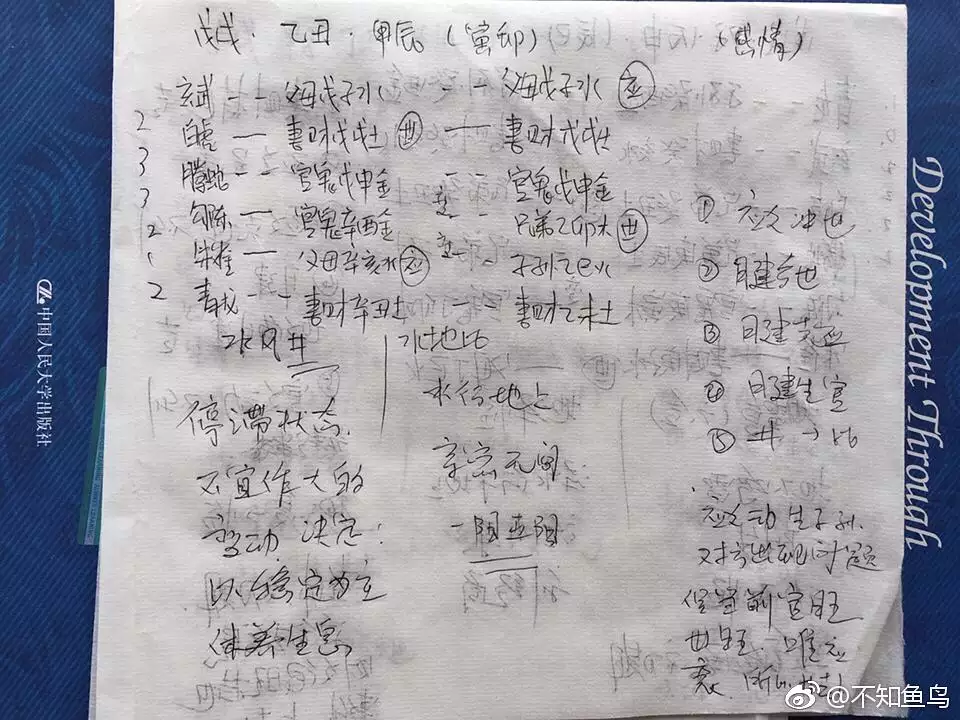 戊戌·乙丑·甲辰(寅卯) (感情)
玄武 -- 父母戊子水 -- 父母戊子水 应
2 白虎 — 妻财戊戌土 世 — 妻财戊戌土
3 腾蛇 -- 官鬼戊申金 -- 官鬼戊申金
3 勾陈 — 官鬼辛酉金 -- 兄弟乙卯木 世
2 朱雀 — 父母辛亥水 应 -- 子孙乙巳火
2 青龙 -- 妻财辛丑土 妻财乙未土
水风井
水地比
停滞状态
不宜作大的
变动 决定:
以稳定为主
休养生息
水行地上
亲密无间
一阳五阴
① 应爻冲世
② 日建合世
③ 日建克应
④ 日建生官
⑤ 井→比
应爻动 生子孙.
对方出现问题
世旺. 唯应
衰.
Development Through
中国人民大学出版社
@不知鱼鸟